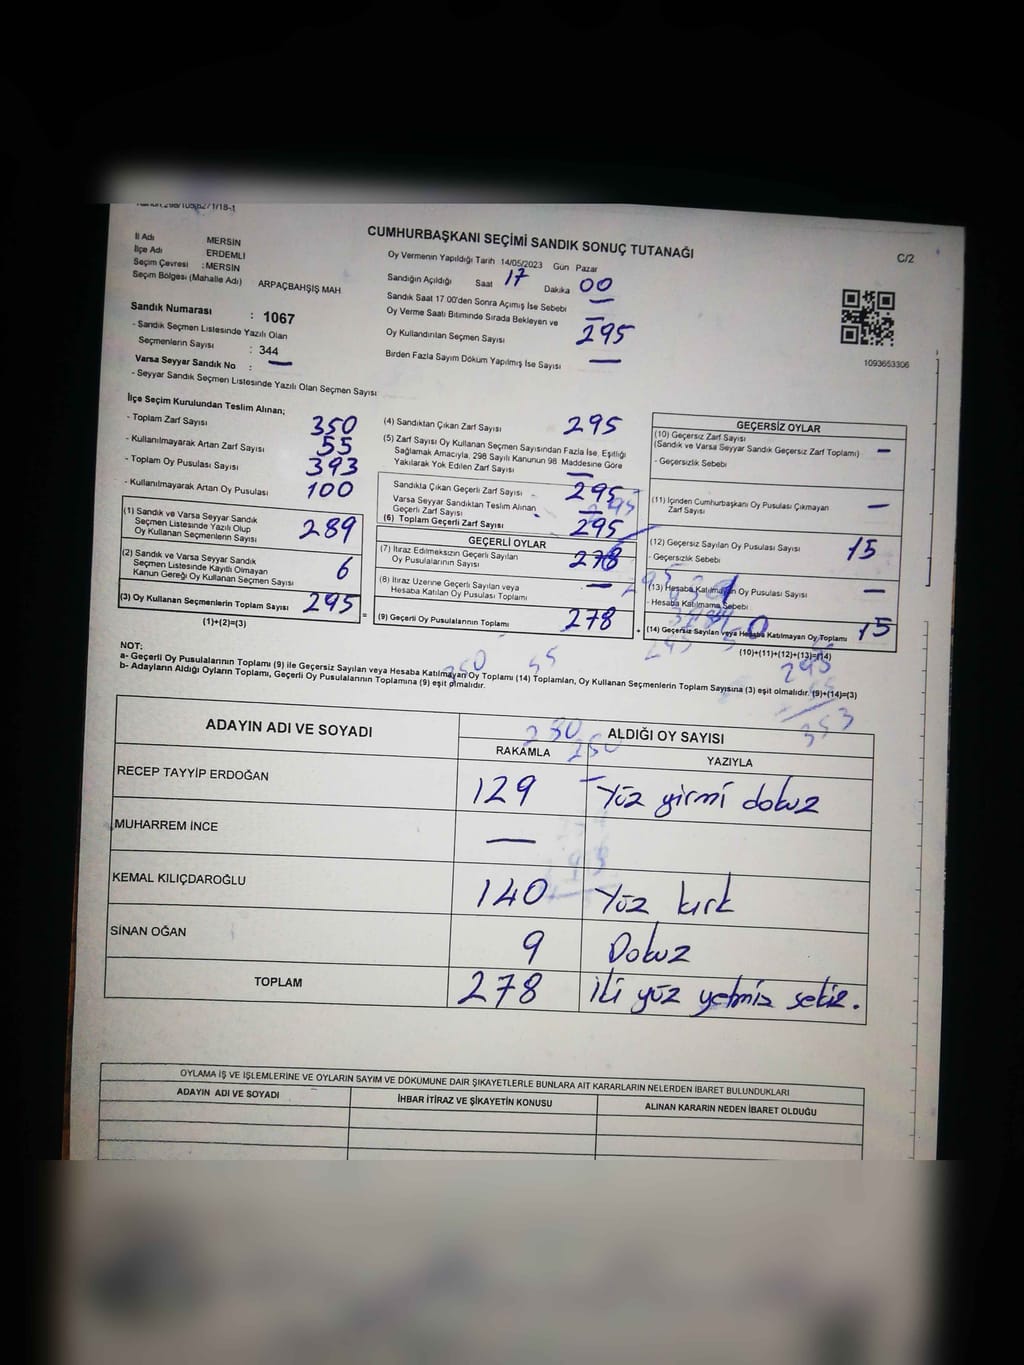 CUMHURBAŞKANI SEÇİMİ SANDIK SONUÇ TUTANAĞI
C/2
İl Adı MERSİN
İlçe Adı ERDEMLİ
Seçim Çevresi : MERSİN
Seçim Bölgesi (Mahalle Adı) ARPAÇBAHŞİŞ MAH.
Sandık Numarası : 1067
- Sandık Seçmen Listesinde Yazılı Olan
Seçmenlerin Sayısı : 344
Varsa Seyyar Sandık No : —
- Seyyar Sandık Seçmen Listesinde Yazılı Olan Seçmen Sayısı
Oy Vermenin Yapıldığı Tarih 14/05/2023 Gün Pazar
Sandığın Açıldığı Saat 17 Dakika 00
Sandık Saat 17.00'den Sonra Açımış İse Sebebi —
Oy Verme Saati Bitiminde Sırada Bekleyen ve —
Oy Kullandırılan Seçmen Sayısı 295
Birden Fazla Sayım Döküm Yapılmış İse Sayısı —
1093653306
İlçe Seçim Kurulundan Teslim Alınan;
- Toplam Zarf Sayısı 350
- Kullanılmayarak Artan Zarf Sayısı 55
- Toplam Oy Pusulası Sayısı 393
- Kullanılmayarak Artan Oy Pusulası 100
(1) Sandık ve Varsa Seyyar Sandık
Seçmen Listesinde Yazılı Olup
Oy Kullanan Seçmenlerin Sayısı 289
(2) Sandık ve Varsa Seyyar Sandık
Seçmen Listesinde Kayıtlı Olmayan
Kanun Gereği Oy Kullanan Seçmen Sayısı 6
(3) Oy Kullanan Seçmenlerin Toplam Sayısı 295 =
(1)+(2)=(3)
(4) Sandıktan Çıkan Zarf Sayısı 295
(5) Zarf Sayısı Oy Kullanan Seçmen Sayısından Fazla İse, Eşitliği
Sağlamak Amacıyla, 298 Sayılı Kanunun 98. Maddesine Göre
Yakılarak Yok Edilen Zarf Sayısı —
Sandıkta Çıkan Geçerli Zarf Sayısı 295
Varsa Seyyar Sandıktan Teslim Alınan
Geçerli Zarf Sayısı —
(6) Toplam Geçerli Zarf Sayısı 295
GEÇERLİ OYLAR
(7) İtiraz Edilmeksizin Geçerli Sayılan
Oy Pusulalarının Sayısı 278
(8) İtiraz Üzerine Geçerli Sayılan veya
Hesaba Katılan Oy Pusulası Toplamı —
(9) Geçerli Oy Pusulalarının Toplamı 278 +
GEÇERSİZ OYLAR
(10) Geçersiz Zarf Sayısı
(Sandık ve Varsa Seyyar Sandık Geçersiz Zarf Toplamı) —
- Geçersizlik Sebebi
(11) İçinden Cumhurbaşkanı Oy Pusulası Çıkmayan
Zarf Sayısı —
(12) Geçersiz Sayılan Oy Pusulası Sayısı 15
- Geçersizlik Sebebi
(13) Hesaba Katılmayan Oy Pusulası Sayısı —
- Hesaba Katılmama Sebebi
(14) Geçersiz Sayılan veya Hesaba Katılmayan Oy Toplamı 15
(10)+(11)+(12)+(13)=(14)
NOT:
a- Geçerli Oy Pusulalarının Toplamı (9) ile Geçersiz Sayılan veya Hesaba Katılmayan Oy Toplamı (14) Toplamları, Oy Kullanan Seçmenlerin Toplam Sayısına (3) eşit olmalıdır. (9)+(14)=(3)
b- Adayların Aldığı Oyların Toplamı, Geçerli Oy Pusulalarının Toplamına (9) eşit olmalıdır.
ADAYIN ADI VE SOYADI ALDIĞI OY SAYISI
RAKAMLA YAZIYLA
RECEP TAYYİP ERDOĞAN 129 Yüz yirmi dokuz
MUHARREM İNCE —
KEMAL KILIÇDAROĞLU 140 Yüz kırk
SİNAN OĞAN 9 Dokuz
TOPLAM 278 iki yüz yetmiş sekiz.
OYLAMA İŞ VE İŞLEMLERİNE VE OYLARIN SAYIM VE DÖKÜMÜNE DAİR ŞİKAYETLERLE BUNLARA AİT KARARLARIN NELERDEN İBARET BULUNDUKLARI
ADAYIN ADI VE SOYADI İHBAR İTİRAZ VE ŞİKAYETİN KONUSU ALINAN KARARIN NEDEN İBARET OLDUĞU